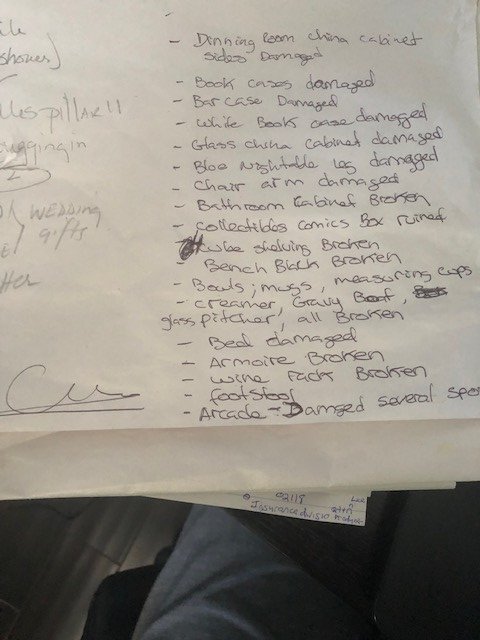 showes)
pillar!!
2
WEDDING
gifts
- Dinning Room china cabinet
sides Damaged
- Book cases damaged
- Bar case Damaged
- White Book case damaged
- Glass china Cabinet damaged
- Bloe Nightable leg damaged
- Chair arm damaged
- Bathroom Cabinet Broken
- collectibles comics Box ruined
kube shelving Broken
- Bench Black Broken
- Bowls, mugs, measuring cups
- creamer, Gravy Boat,
glass pitcher, all Broken
- Bed damaged
- Armoire Broken
- wine rack Broken
- footstool
- Arcade - Damged several spo
02118
Insurance